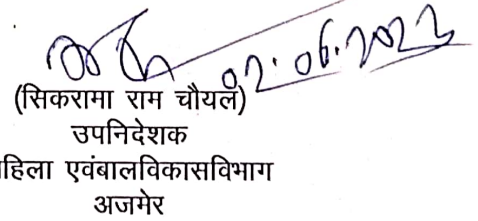 02.06.2022
(सिकरामा राम चौयल)
उपनिदेशक
हिला एवंबालविकासविभाग
अजमेर